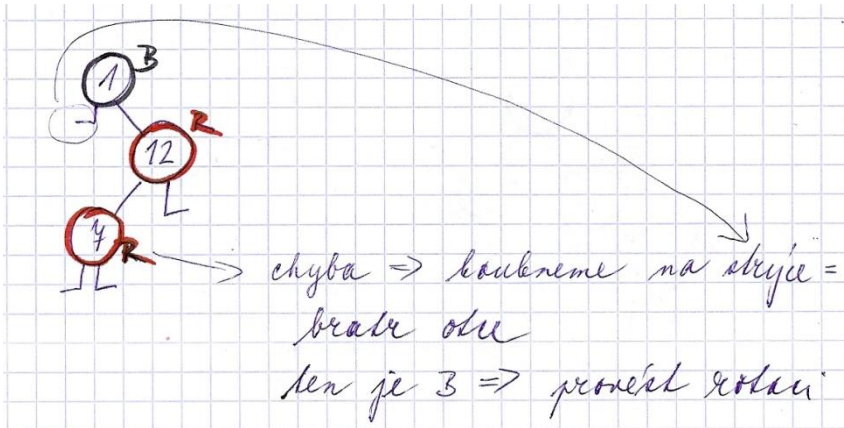 1 B
12 R
7 R
chyba => koukneme na strýce =
bratr otce
ten je B => provést rotaci